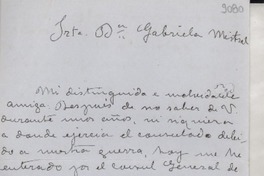 9080
Srta. Dª Gabriela Mistral
Mi distinguida e
amiga: Después de no saber de V
durante unos años, ni siquiera
a donde ejercía el consulado debi-
do a nuestra guerra, hoy me he
enterado por el consul general de